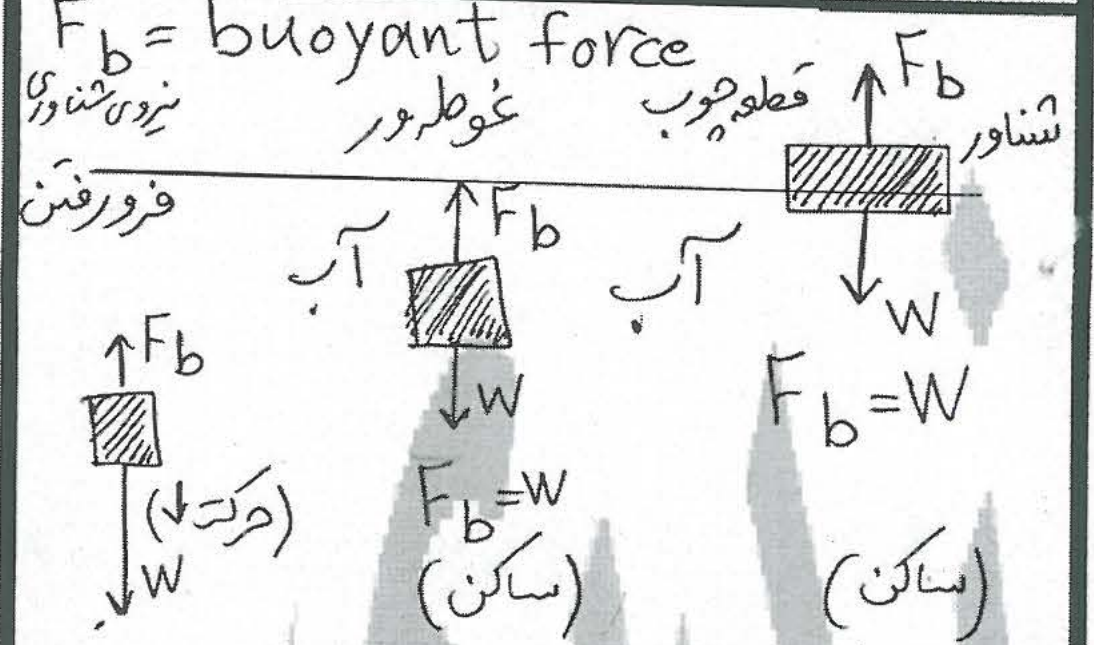 F_b = buoyant force
نیروی شناوری
غوطه‌ور
قطعه چوب
F_b
شناور
فرورفتن
F_b
آب
آب
W
F_b
W
F_b = W
F_b = W
(حرکت ↓)
W
(ساکن)
(ساکن)